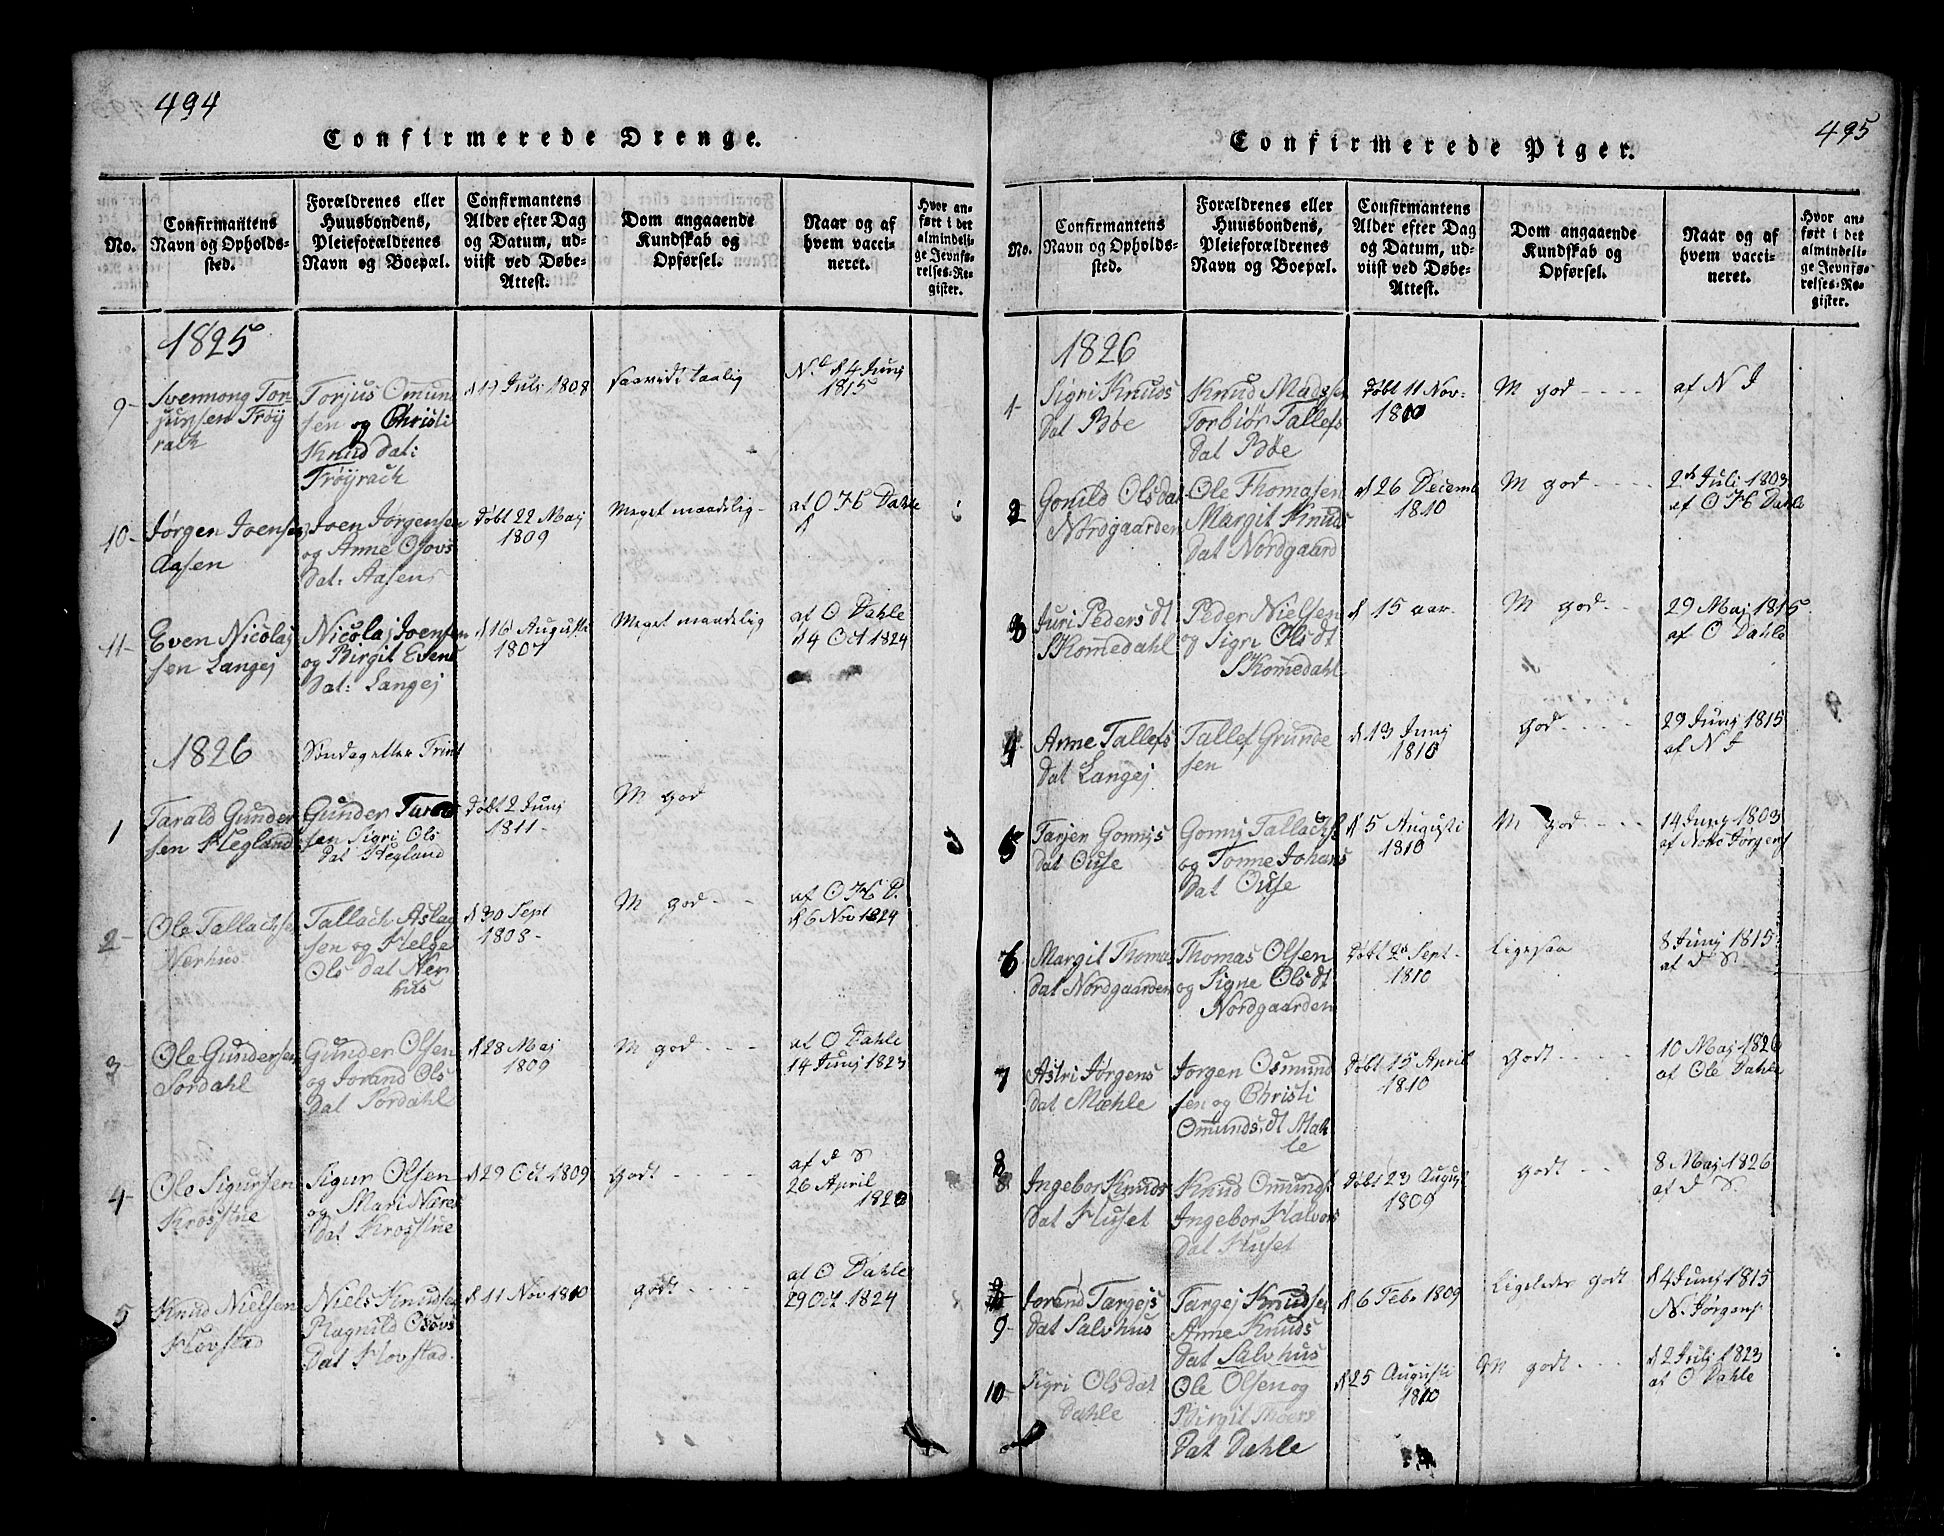 494
Confirmerede Drenge.
No.
Confirmantens
Navn og Opholds-
sted.
Forældrenes eller
Huusbondens,
Pleieforældrenes
Navn og Boepæl.
Confirmantens
Alder efter Dag
og Datum, ud-
viist ved Døbe-
Attest.
Dom angaaende
Kundskab og
Opførsel.
Naar og af
hvem vacci-
neret.
Hvor an-
ført i det
almindeli-
ge Jevnfø-
relses-Re-
gister.
1825
9-
Svennong Tor
jussen Trøy
rack
Torjus Omund
sen og Christi
Knud Dat:
Trøyrack
d 19 Juli 1808
saavidt taalig
N. d 4 Junj
1815
10-
Jørgen Joensen
Aasen
Joen Jørgensen
og Anne Olovs
Dat: Aasen
Døbt 22 Maj
1809
Meget maadelig-
af O K Dahle
11-
Even Nicolaj
sen Langej
Nicolaj Joensen
og Birgit Evens
Dat: Langej
d 16 Augusti
1807
Meget maadelig
af O Dahle
d 14 Oct 1824
1826
Søndag etter Trinit
1
Tarald Gunder
sen Hegland
Gunder Tarald
sen Sigri Ols
Dat Hegland
Døbt 2 Junj
1811-
M god
2-
Ole Tallachsen
Nerhus
Tallach Aslag
sen og Helge
Ols Dat Ner
hus
d 30 Sept
1808-
M god - - -
af O K D.
d 6 Nov 1824
3-
Ole Gundersen
Sordahl
Gunder Olsen
og Jorand Ols
Dat Sordahl
d 28 Maj
1809
M god - - -
af O Dahle
14 Junj 1823
4-
Ole Sigursen
Krosstue
Sigur Olsen
og Mari Nares
Dat Krosstue
d 29 Oct 1809
godt - - - -
af d S
26 April
1820
5
Knud Nielsen
Hovstad
Niels Knudsen
Ragnild Olovs
Dat Hovstad.
d 11 Nov 1810
godt - - - -
af O Dahle
29 Oct 1824
495
Confirmerede Piger.
No.
Confirmantens
Navn og Opholds-
sted.
Forældrenes eller
Huusbondens,
Pleieforældrenes
Navn og Boepæl.
Confirmantens
Alder efter Dag
og Datum, ud-
viist ved Døbe-
Attest.
Dom angaaende
Kundskab og
Opførsel.
Naar og af
hvem vacci-
neret.
Hvor an-
ført i det
almindeli-
ge Jevnfø-
relses-Re-
gister.
1826
1-
Sigri Knuds
Dat Bøe
Knud Madssen
Torbiør Tallefs
Dat Bøe
Døbt 11 Nov-
1810
M god - - - -
af N J
2
Gonild Olsdat
Nordgaarden
Ole Thomasen
Margit Knuds
Dat Nordgaard
d 26 Decemb
1810
M god - - - -
2 d Juli 1803
af O K Dahle
3
Juri Peders dt
Skomedahl
Peder Nielsen
og Sigri Ols dt
Skomedahl
d 15 aar.
M god - -
29 Maj 1815
af O Dahle
4-
Anne Tallefs
Dat Langej
Tallef Grunde
sen
d 13 Junj
1810
god - - - -
29 Junj 1815
af N J
5
Tarjer Gonnys
dat Ouse
Gonnj Tallachs
og Tonne Johans
Dat Ouse
d 5 Augusti
1810
M god - - -
14 Junj 1803
af Jørgens
6
Margit Thomas
dat Nordgaarden
Thomas Olsen
og Signe Ols dt
Nordgaarden
Døbt 2 Sept-
1810
Ligesaa
8 Junj 1815
af d S
7
Astri Jørgens
Dat Mæhle
Jørgen Osmund
sen og Christi
Omunds dt Mæh
le
Døbt 15 April
1810
godt - - -
10 Maj 1826
af Ole Dahle
8
Ingebor Knuds
Dat Huset
Knud Omunds
Ingebor Halvors
Dat Huset
Døbt 23 August
1809
godt - -
8 Maj 1826
af d S.
9-
Jorend Targejs
Dat Salvhus
Targej Knudsen
Anne Knuds
Dat Salvhus
d 6 Febr 1809
Ligeledes godt
d 4 Junj 1815
N. Jørgens
10-
Sigri Olsdat
Dahle
Ole Olsen og
Birgit
Dat Dæhle
d 25 Augusti
1810
M godt - - -
d 2 Julj 1823
af O Dahle